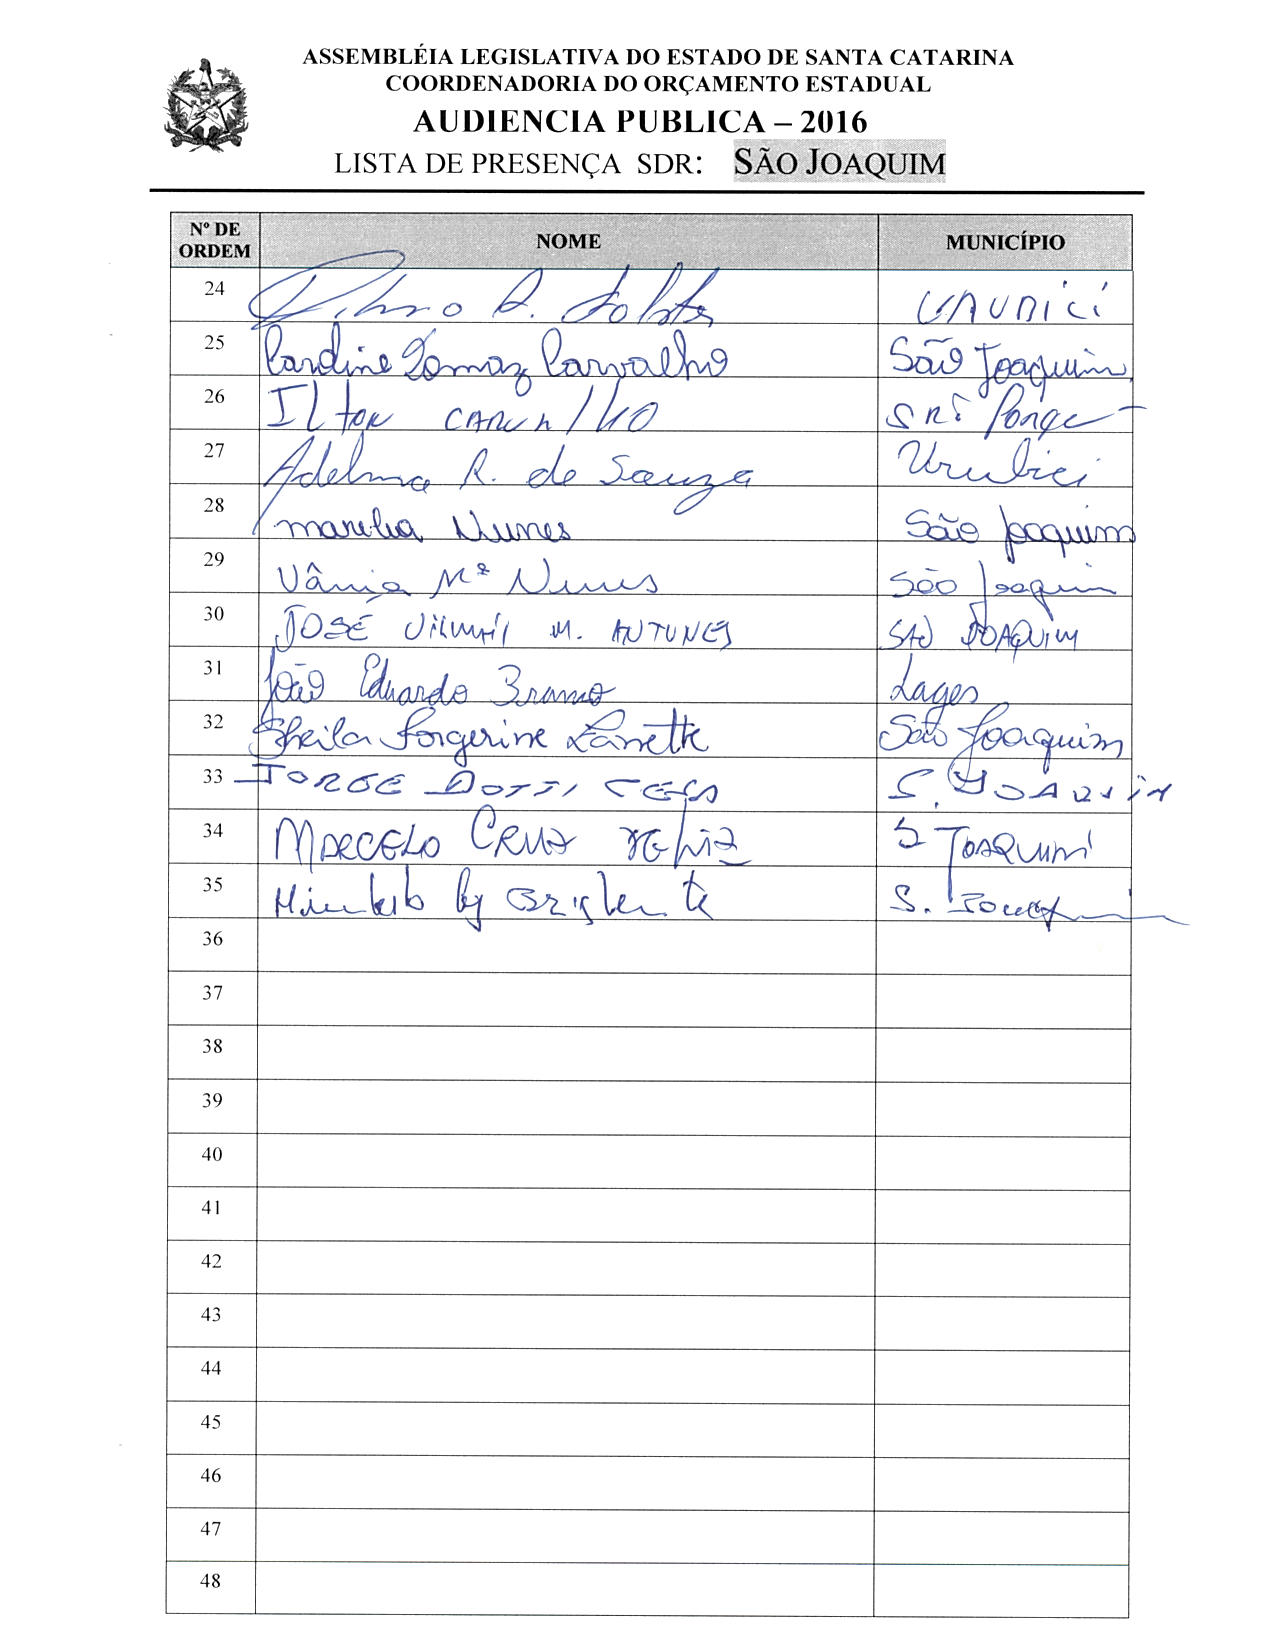 ASSEMBLÉIA LEGISLATIVA DO ESTADO DE SANTA CATARINA
COORDENADORIA DO ORÇAMENTO ESTADUAL
AUDIENCIA PUBLICA – 2016
LISTA DE PRESENÇA SDR: SÃO JOAQUIM
Nº DE ORDEM NOME MUNICÍPIO
24
25 Tomaz Carvalho São Joaquim
26 Ilton
27 Adelma R. de Souza Urubici
28 Nunes São Joaquim
29 Vânia Mª Nunes São Joaquim
30 JOSÉ M. ANTUNES SÃO JOAQUIM
31 João Eduardo Lages
32 Sheila Zanette São Joaquim
33 JORGE S. JOAQUIM
34 MARCELO CRUZ S JOAQUIM
35 S.
36
37
38
39
40
41
42
43
44
45
46
47
48